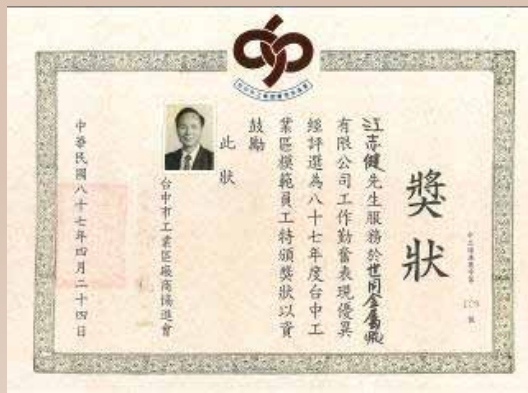 獎狀
江志健先生服務於世同金屬股
有限公司工作勤奮表現優異
經評選為八十七年度台中工
業區模範員工特頒獎狀以資
鼓勵
此狀
台中市工業區廠商協進會
中華民國八十七年四月二十四日